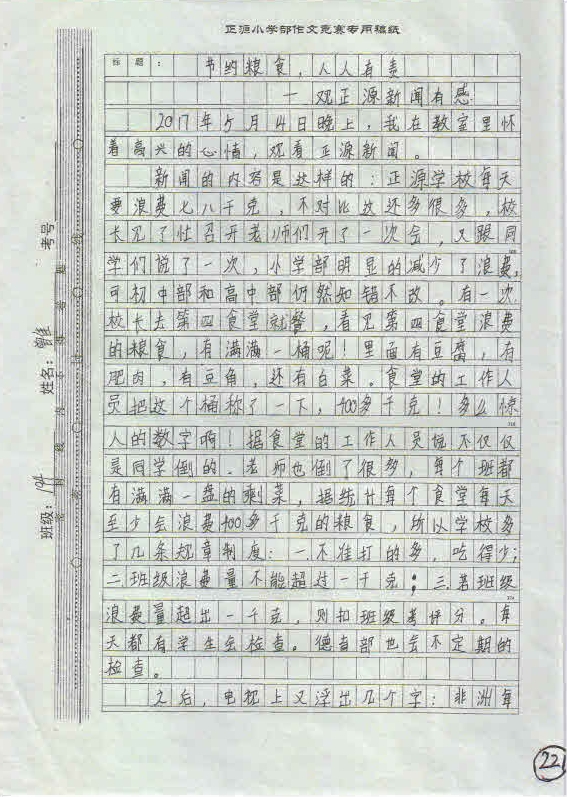 正源小学部作文竞赛专用稿纸
标题：节约粮食，人人有责
一观正源新闻有感
2017年5月4日晚上，我在教室里怀
着高兴的心情，观看正源新闻。
新闻的内容是这样的：正源学校每天
要浪费七八千克，不对比这还多很多，校
长见了忙召开老师们开了一次会，又跟同
学们说了一次，小学部明显的减少了浪费，
可初中部和高中部仍然知错不改。有一次
校长去第四食堂就餐，看见第四食堂浪费
的粮食，有满满一桶呢！里面有豆腐，有
肥肉，有豆角，还有白菜。食堂的工作人
员把这个桶称了一下，400多千克！多么惊
人的数字啊！据食堂的工作人员说不仅仅
是同学倒的．老师也倒了很多，每个班都
有满满一盘的剩菜，据统计每个食堂每天
至少会浪费400多千克的粮食，所以学校多
了几条规章制度：一不准打的多，吃得少；
二班级浪费量不能超过一千克；三若班级
浪费量超出一千克，则扣班级考评分。每
天都有学生会检查。德育部也会不定期的
检查。
之后，电视上又浮出几个字：非洲每
考号
姓名：
班级：194
221